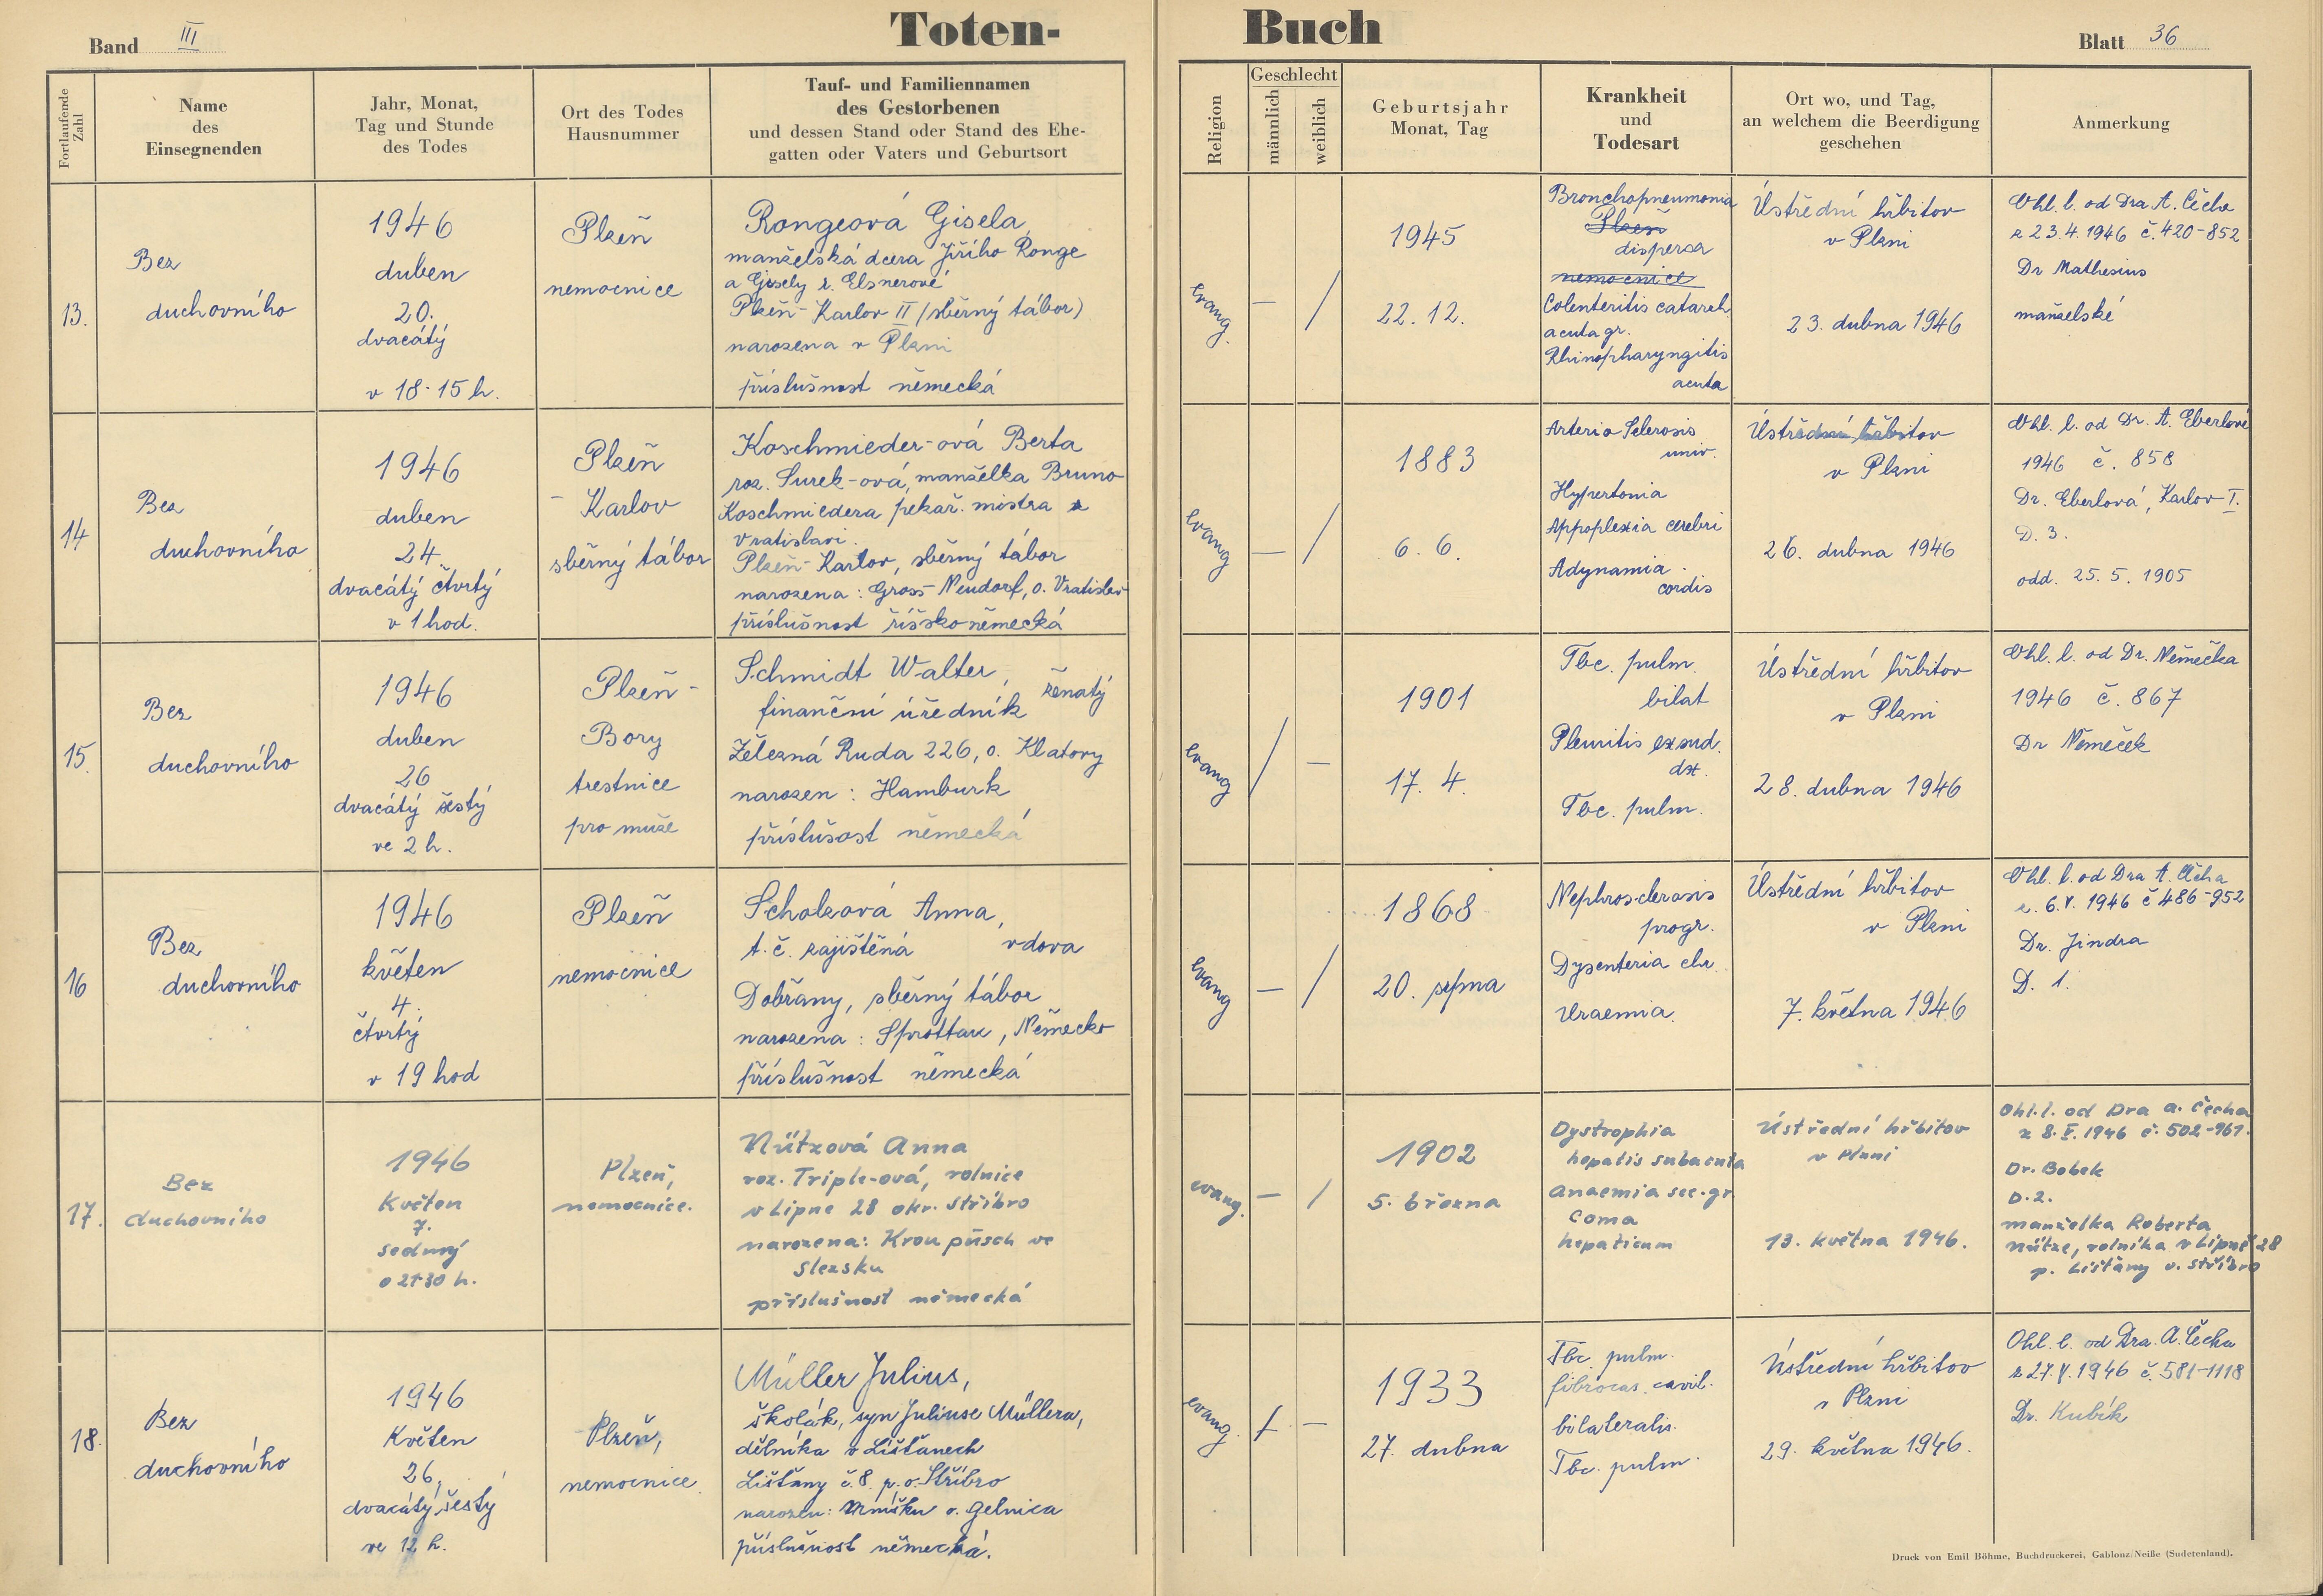 Band III
Toten-
Buch
Blatt 36
Fortlaufende Zahl
Name
des
Einsegnenden
Jahr, Monat,
Tag und Stunde
des Todes
Ort des Todes
Hausnummer
Tauf- und Familiennamen
des Gestorbenen
und dessen Stand oder Stand des Ehe-
gatten oder Vaters und Geburtsort
Religion
Geschlecht
männlich
weiblich
Geburtsjahr
Monat, Tag
Krankheit
und
Todesart
Ort wo, und Tag,
an welchem die Beerdigung
geschehen
Anmerkung
13.
Bez
duchovního
1946
duben
20.
dvacátý
v 18·15 h.
Plzeň
nemocnice
Rongeová Gisela,
manželská dcera Jiřího Ronge
a Gisely r. Elsnerové
Plzeň-Karlov II (sběrný tábor)
narozena v Plzni
příslušnost německá
evang.
— /
1945
22. 12.
Bronchopneumonia
Plzeň
dispersa
nemocnice
Colenteritis catarrh.
acuta gr.
Rhinopharyngitis
acuta
Ústřední hřbitov
v Plzni
23. dubna 1946
Ohl. l. od Dra A. Čecha
z 23.4.1946 č. 420-852
Dr Mathesius
manželské
14
Bez
duchovního
1946
duben
24.
dvacátý čtvrtý
v 1 hod.
Plzeň
- Karlov
sběrný tábor
Koschmieder-ová Berta
roz. Surek-ová, manželka Bruno
Koschmiedera pekař. mistra z
Vratislavi.
Plzeň-Karlov, sběrný tábor
narozena: Gross-Neudorf, o. Vratislav
příslušnost říšskoněmecká
evang
— /
1883
6. 6.
Arterio Sclerosis
univ.
Hypertonia
Appoplexia cerebri
Adynamia
cordis
Ústřední hřbitov
v Plzni
26. dubna 1946
Ohl. l. od Dr. A. Eberlové
1946 č. 858
Dr. Eberlová, Karlov I.
D. 3.
odd. 25. 5. 1905
15.
Bez
duchovního
1946
duben
26
dvacátý šestý
ve 2 h.
Plzeň-
Bory
trestnice
pro muže
Schmidt Walter,
finanční úředník ženatý
Železná Ruda 226, o. Klatovy
narozen: Hamburk
příslušost německá
evang
/ —
1901
17. 4.
Tbc. pulm.
bilat
Pleuritis exsud.
dx.
Tbc. pulm.
Ústřední hřbitov
v Plzni
28. dubna 1946
Ohl. l. od Dr. Němečka
1946 č. 867
Dr Němeček
16
Bez
duchovního
1946
květen
4.
čtvrtý
v 19 hod
Plzeň
nemocnice
Scholzová Anna,
t. č. zajištěná vdova
Dobřany, sběrný tábor
narozena: Sprottau, Německo
příslušnost německá
evang
— /
1868
20. srpna
Nephrosclerosis
progr.
Dysenteria chr.
Uraemia.
Ústřední hřbitov
v Plzni
7. května 1946
Ohl. l. od Dra A. Čecha
z. 6.V. 1946 č 486-952
Dr. Jindra
D. 1.
17.
Bez
duchovního
1946
Květen
7.
sedmý
o 21·30 h.
Plzeň,
nemocnice.
Nützová Anna
roz. Triple-ová, rolnice
v Lipne 28 okr. Stříbro
narozena: Kroupüsch ve
Slezsku
příslušnost německá
evang.
— /
1902
5. března
Dystrophia
hepatis subacuta
Anaemia sec. gr.
Coma
hepaticum
Ústřední hřbitov
v Plzni
13. května 1946.
Ohl. l. od Dra A. Čecha
z 8. V. 1946 č. 502-961.
Dr. Bobek
D. 2.
manželka Roberta
Nütze, rolníka v Lipně 28
p. Lištany o. Stříbro
18.
Bez
duchovního
1946
Květen
26.
dvacátý šestý
ve 12 h.
Plzeň,
nemocnice
Müller Julius,
školák, syn Juliuse Müllera,
dělníka v Lišťanech
Lišťany č. 8 p. o. Stříbro
narozen: Mníšku o. Gelnica
příslušnost německá.
evang.
/ —
1933
27. dubna
Tbc. pulm.
fibrocas. cavit.
bilateralis.
Tbc. pulm.
Ústřední hřbitov
v Plzni
29. května 1946.
Ohl. l. od Dra. A. Čecha
z 27.V.1946 č. 581-1118
Dr. Kubík
Druck von Emil Böhme, Buchdruckerei, Gablonz/Neiße (Sudetenland).